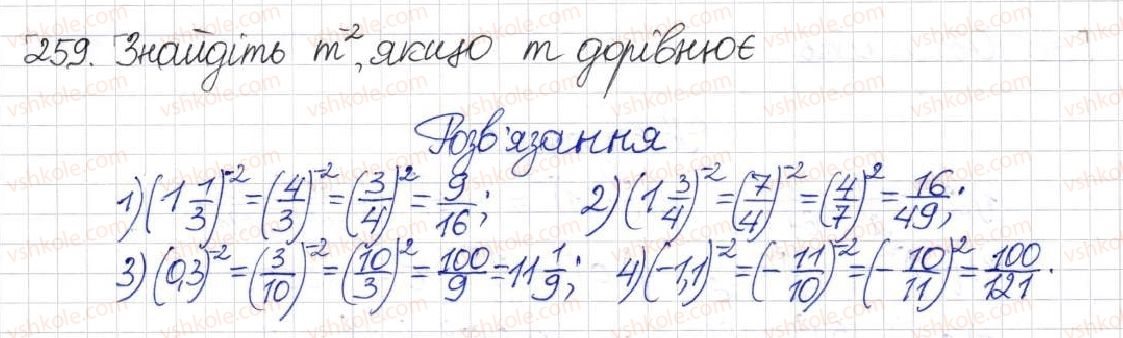 259. Знайдіть m⁻², якщо m дорівнює
Розв'язання
1) (1 1/3)⁻² = (4/3)⁻² = (3/4)² = 9/16; 2) (1 3/4)⁻² = (7/4)⁻² = (4/7)² = 16/49;
3) (0,3)⁻² = (3/10)⁻² = (10/3)² = 100/9 = 11 1/9; 4) (-1,1)⁻² = (-11/10)⁻² = (-10/11)² = 100/121.